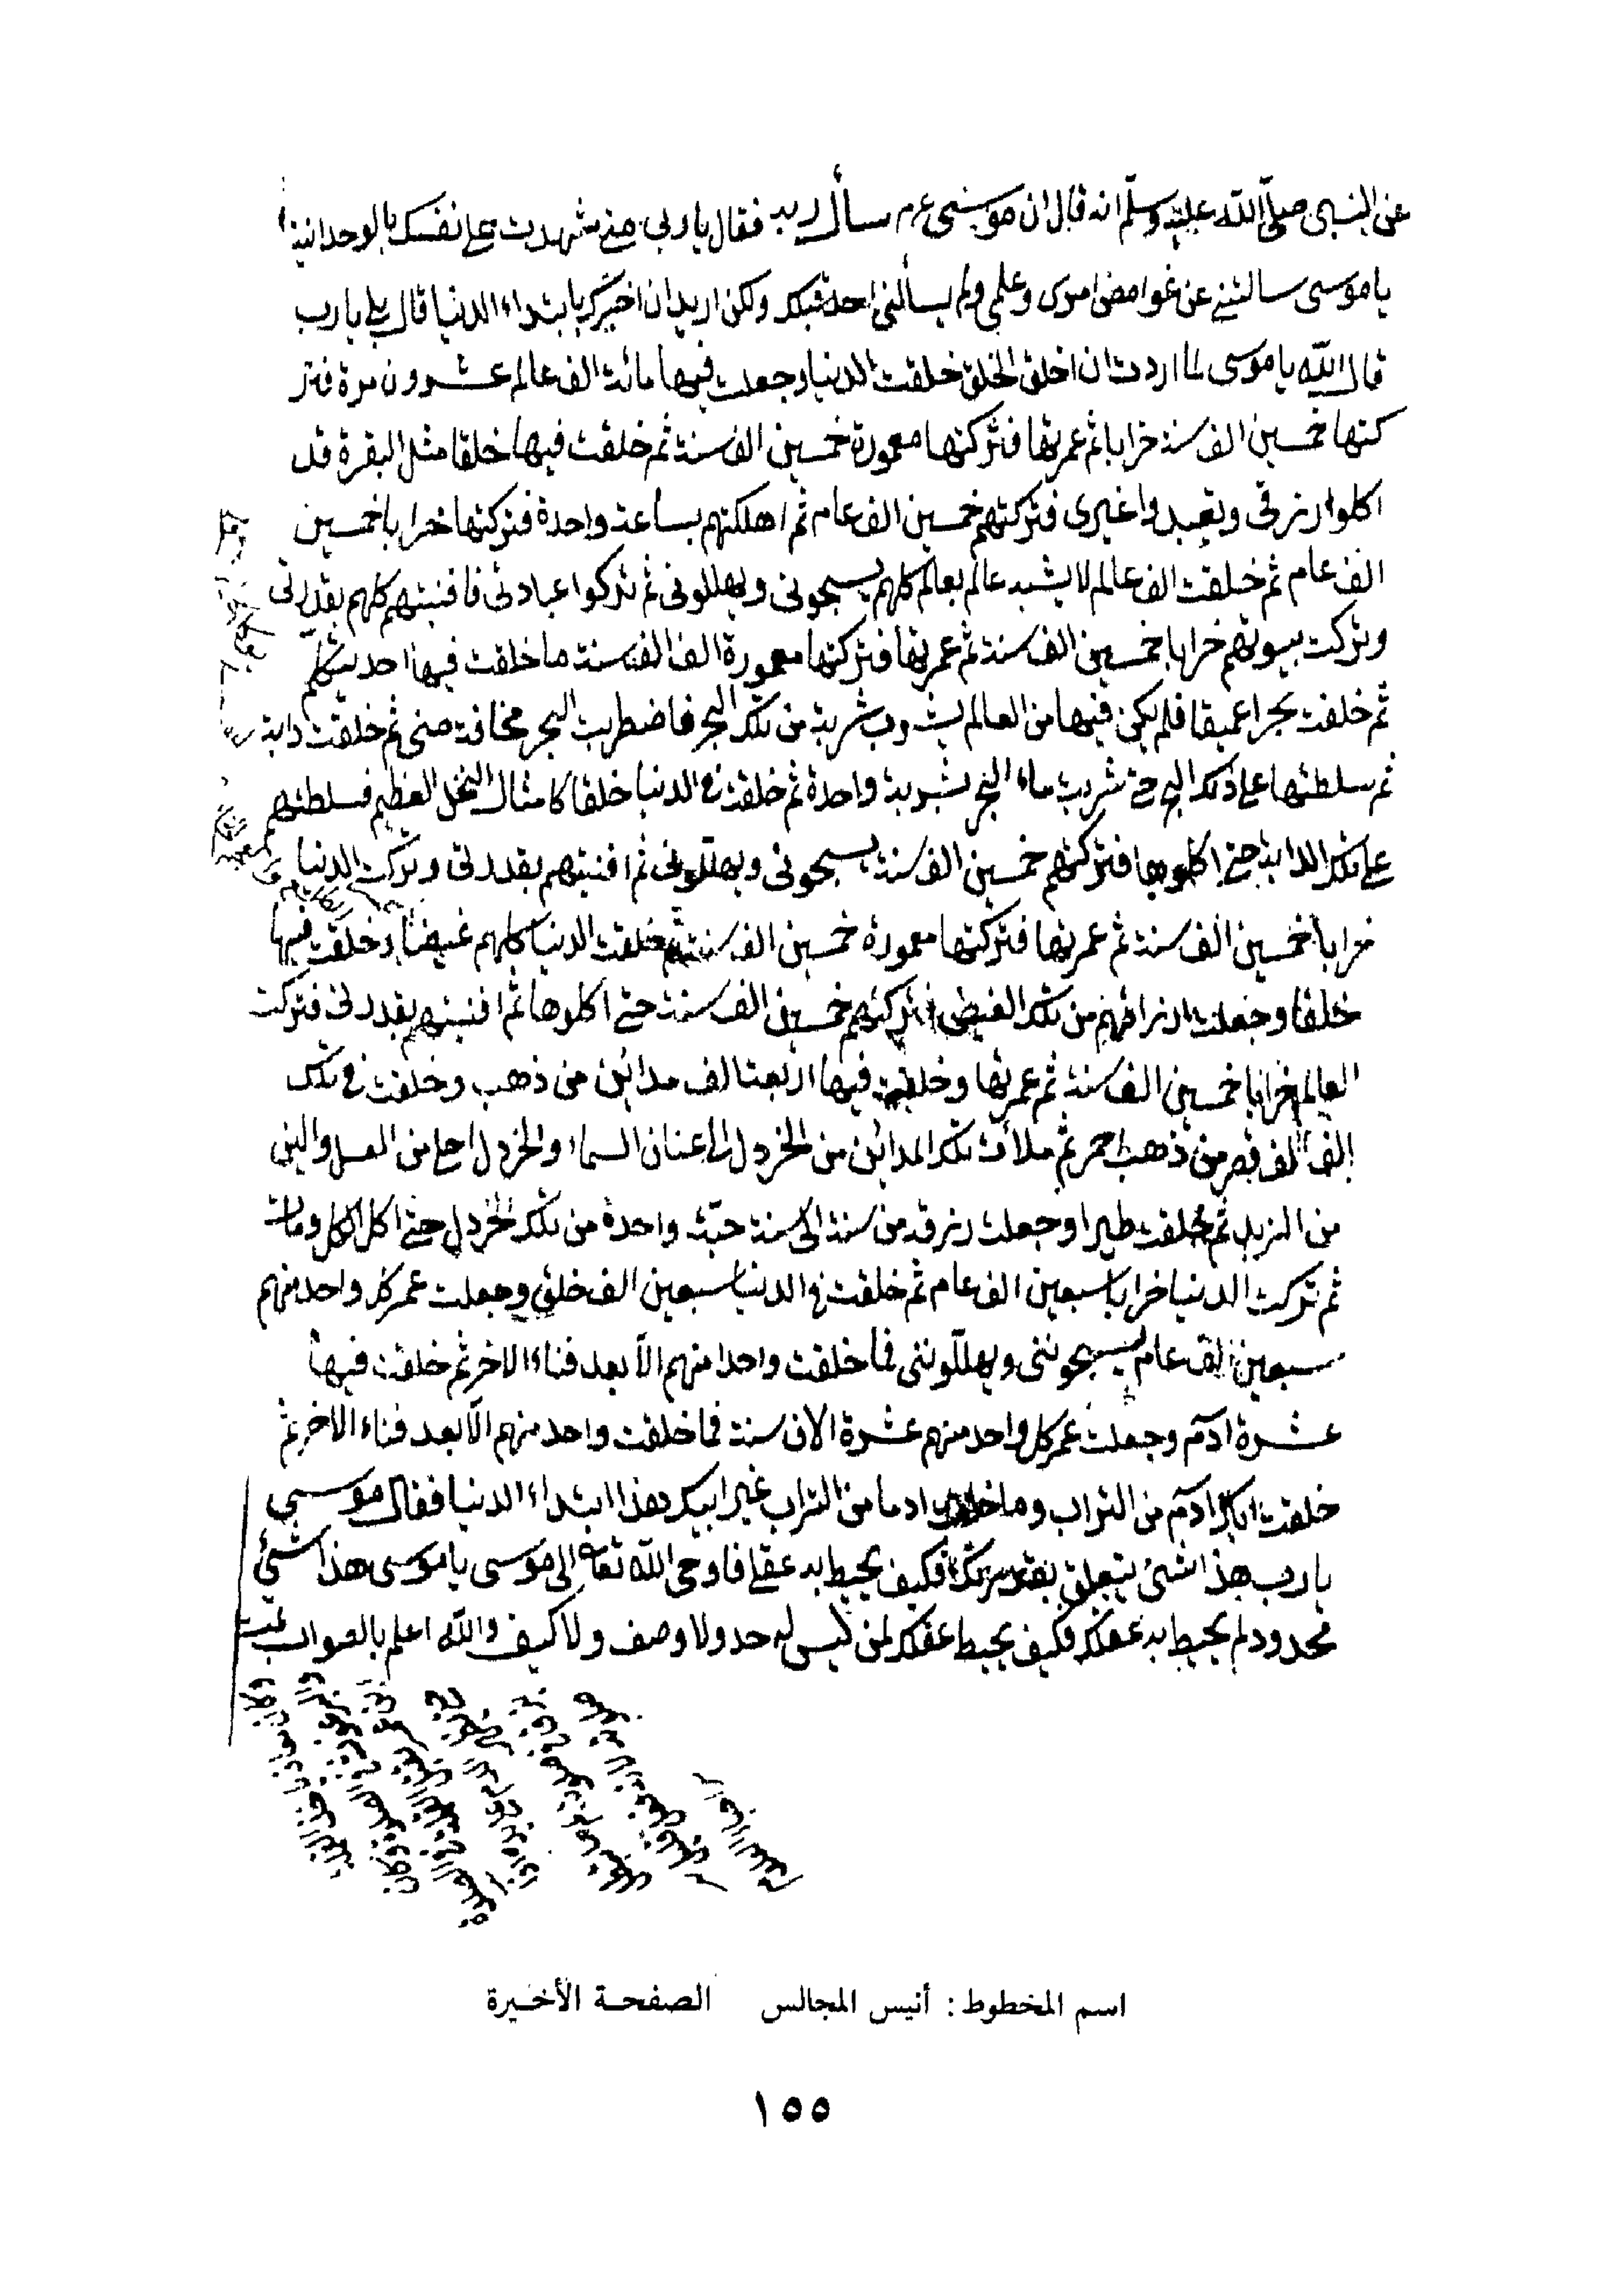 عن النبى صلى الله عليه وسلم انه قال ان موسى ع م سأل ربه فقال يا ربى متى شهدت على نفسك بالوحدانية
يا موسى سالتنى عن غوامض امرى وعلمى ولم يسألنى احد قبلك ولكن اريد ان اخبرك بابتداء الدنيا قال بلى يا رب
قال الله يا موسى لما اردت ان اخلق الخلق خلقت الدنيا وجعلت فيها مائة الف عالم عشرون مرة فتر
كتها خمسين الف سنة خرابا ثم عمرتها فتركتها معمورة خمسين الف سنة ثم خلقت فيها خلقا مثل البقرة قد
اكلوا رزقى ويعبدوا غيرى فتركتهم خمسين الف عام ثم اهلكتهم بساعة واحدة فتركتها خرابا خمسين
الف عام ثم خلقت الف عالم لا يشبه عالم بعالم كلهم يسبحونى ويهللونى ثم تركوا عبادتى فافنيتهم كلهم بقدرتى
وتركت بيوتهم خرابا خمسين الف سنة ثم عمرتها فتركتها معمورة الف الف سنة ما خلقت فيها احد يتكلم
ثم خلقت بحرا عميقا فلم يكن فيها من العالم يشروب شربة من تلك البحر فاضطربت البحر مخافة منى ثم خلقت دابة
ثم سلطتها على ذلك البحر حتى شربت ماء البحر بشربة واحدة ثم خلقت فى الدنيا خلقا كامثال النخل العظيم فسلطتهم
على تلك الدابة حتى اكلوها فتركتهم خمسين الف سنة يسبحونى ويهللونى ثم افنيتهم بقدرتى وتركت الدنيا
خرابا خمسين الف سنة ثم عمرتها فتركتها معمورة خمسين الف سنة ثم خلقت الدنيا كلهم غيضا وخلقت فيها
خلقا وجعلت ارزاقهم من تلك الغيض فتركتهم خمسين الف سنة حتى اكلوها ثم افنيتهم بقدرتى فتركت
العالم خرابا خمسين الف سنة ثم عمرتها وخلقت فيها اربعة الف مدائن من ذهب وخلقت فى تلك
الف الف قصر من ذهب احمر ثم ملأت تلك المدائن من الخردل الى عنان السماء والخردل احلى من العسل والين
من الزبد ثم خلقت طيرا وجعلت رزقه من سنة الى سنة حبة واحدة من تلك الخردل حتى اكل الكل ومات
ثم تركت الدنيا خرابا سبعين الف عام ثم خلقت فى الدنيا سبعين الف خلق وجعلت عمر كل واحد منهم
سبعين الف عام يسبحوننى ويهللوننى فما خلقت واحدا منهم الا بعد فناء الاخر ثم خلقت فيها
عشرة ادم وجعلت عمر كل واحد منهم عشرة الاف سنة فما خلقت واحد منهم الا بعد فناء الاخر ثم
خلقت اباك ادم من التراب وما خلقت ادما من التراب غير ابيك هذا ابتداء الدنيا فقال موسى
يا رب هذا شئ يتعلق بقدرتك فكيف يحيط به عقلى فاوحى الله تعالى الى موسى يا موسى هذا شئ
محدود لم يحيط به عقلك فكيف يحيط عقلك لمن ليس له حد ولا وصف ولا كيف والله اعلم بالصواب تمت
اسم المخطوط : أنيس المجالس الصفحة الأخيرة
١٥٥